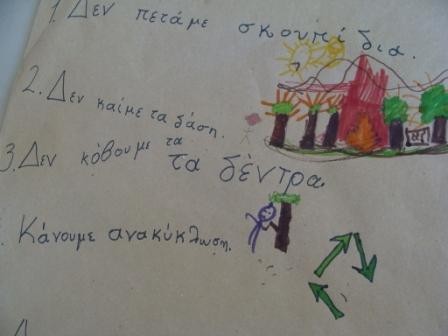 1. Δεν πετάμε σκουπίδια.
2. Δεν καίμε τα δάση.
3. Δεν κόβουμε τα
τα δέντρα.
Κάνουμε ανακύκλωση.